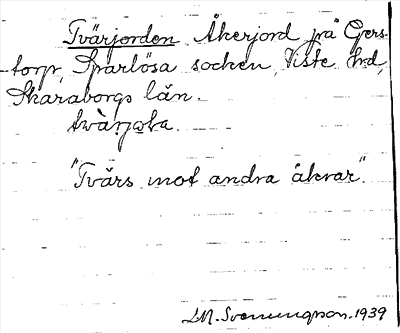 Tvärjorden Åkerjord på Gers-
torp, Sparlösa socken, Viste hd,
Skaraborgs län.
"Tvärs mot andra åkrar".
L.M. Svenungsson. 1939